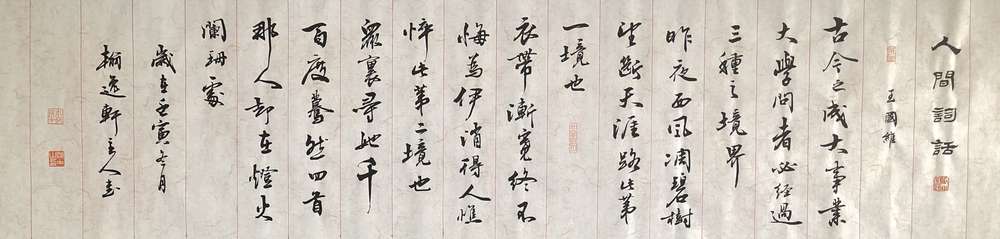 人間詞話
王國維
古今之成大事業
大學問者必經過
三種之境界
昨夜西風凋碧樹
望斷天涯路此第
一境也
衣帶漸寬終不
悔為伊消得人憔
悴此第二境也
眾裏尋他千
百度驀然回首
那人却在燈火
闌珊處
歲在壬寅七月
軒主人書